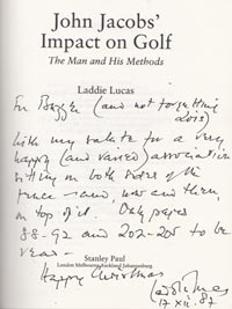 John Jacobs'
Impact on Golf
The Man and His Methods
Laddie Lucas
For (and not forgetting
Lois)
With my salute for a very
happy (and varied) association
sitting on both sides of the
fence – and, now and then,
on top of it. Only pages
88-92 and 202-205 to be
read –
Happy Christmas
Laddie Lucas
17 XII. 87
Stanley Paul
London Melbourne Auckland Johannesburg